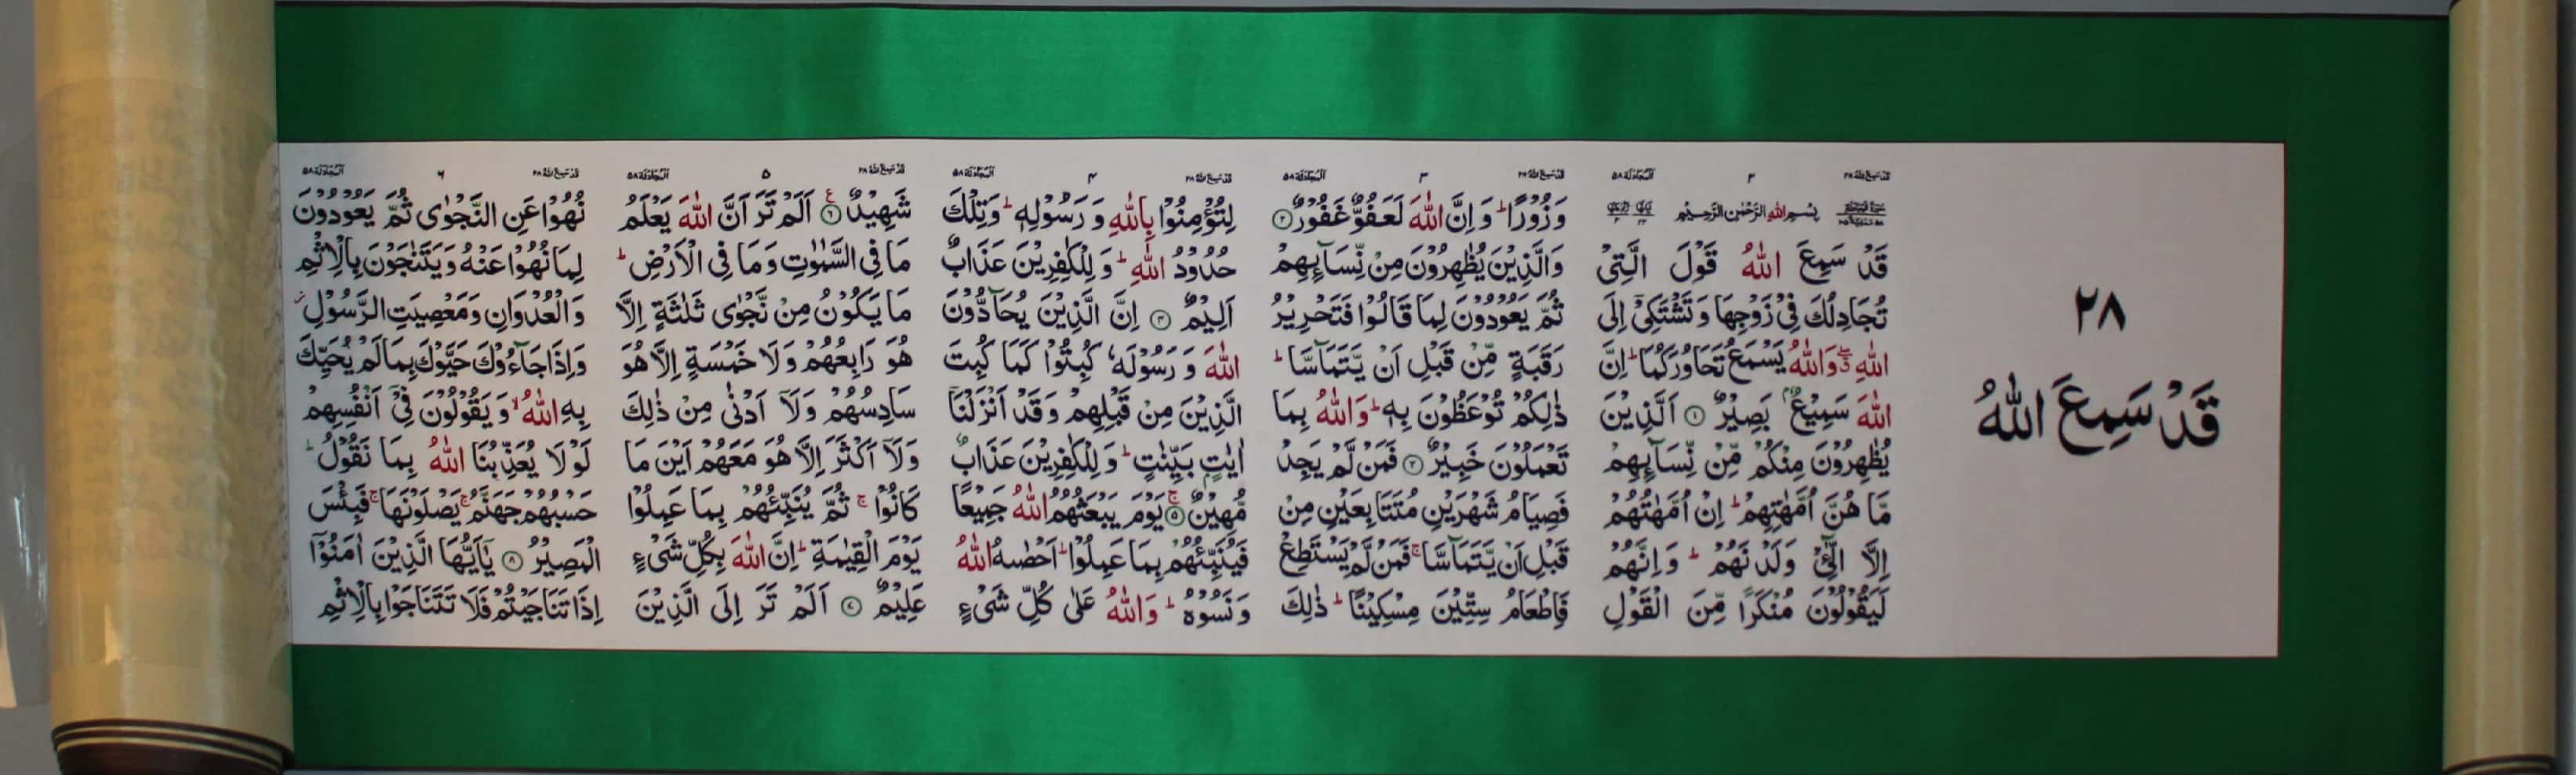 ٢٨
قَدْ سَمِعَ اللهُ
قد سمع الله ٢٨
٢
المجادلة ٥٨
بِسْمِ اللهِ الرَّحْمٰنِ الرَّحِيْمِ
قَدْ سَمِعَ اللهُ قَوْلَ الَّتِیْ
تُجَادِلُكَ فِیْ زَوْجِهَا وَ تَشْتَكِیْۤ اِلَی
اللهِ ۖۗ وَ اللهُ یَسْمَعُ تَحَاوُرَكُمَا ؕ اِنَّ
اللهَ سَمِیْعٌۢ بَصِیْرٌ ۝١ اَلَّذِیْنَ
یُظٰهِرُوْنَ مِنْكُمْ مِّنْ نِّسَآىِٕهِمْ
مَّا هُنَّ اُمَّهٰتِهِمْ ؕ اِنْ اُمَّهٰتُهُمْ
اِلَّا الّٰٓـِٔیْ وَلَدْنَهُمْ ؕ وَ اِنَّهُمْ
لَیَقُوْلُوْنَ مُنْكَرًا مِّنَ الْقَوْلِ
قد سمع الله ٢٨
٣
المجادلة ٥٨
وَ زُوْرًا ؕ وَ اِنَّ اللهَ لَعَفُوٌّ غَفُوْرٌ ۝٢
وَ الَّذِیْنَ یُظٰهِرُوْنَ مِنْ نِّسَآىِٕهِمْ
ثُمَّ یَعُوْدُوْنَ لِمَا قَالُوْا فَتَحْرِیْرُ
رَقَبَةٍ مِّنْ قَبْلِ اَنْ یَّتَمَآسَّا ؕ
ذٰلِكُمْ تُوْعَظُوْنَ بِهٖ ؕ وَ اللهُ بِمَا
تَعْمَلُوْنَ خَبِیْرٌ ۝٣ فَمَنْ لَّمْ یَجِدْ
فَصِیَامُ شَهْرَیْنِ مُتَتَابِعَیْنِ مِنْ
قَبْلِ اَنْ یَّتَمَآسَّا ۚ فَمَنْ لَّمْ یَسْتَطِعْ
فَاِطْعَامُ سِتِّیْنَ مِسْكِیْنًا ؕ ذٰلِكَ
قد سمع الله ٢٨
۴
المجادلة ٥٨
لِتُؤْمِنُوْا بِاللهِ وَ رَسُوْلِهٖ ؕ وَ تِلْكَ
حُدُوْدُ اللهِ ؕ وَ لِلْكٰفِرِیْنَ عَذَابٌ
اَلِیْمٌ ۝٤ اِنَّ الَّذِیْنَ یُحَآدُّوْنَ
اللهَ وَ رَسُوْلَهٗ كُبِتُوْا كَمَا كُبِتَ
الَّذِیْنَ مِنْ قَبْلِهِمْ وَ قَدْ اَنْزَلْنَاۤ
اٰیٰتٍۭ بَیِّنٰتٍ ؕ وَ لِلْكٰفِرِیْنَ عَذَابٌ
مُّهِیْنٌ ۝٥ۚ یَوْمَ یَبْعَثُهُمُ اللهُ جَمِیْعًا
فَیُنَبِّئُهُمْ بِمَا عَمِلُوْا ؕ اَحْصٰىهُ اللهُ
وَ نَسُوْهُ ؕ وَ اللهُ عَلٰی كُلِّ شَیْءٍ
قد سمع الله ٢٨
٥
المجادلة ٥٨
شَهِیْدٌ ۝٦ ع اَلَمْ تَرَ اَنَّ اللهَ یَعْلَمُ
مَا فِی السَّمٰوٰتِ وَ مَا فِی الْاَرْضِ ؕ
مَا یَكُوْنُ مِنْ نَّجْوٰی ثَلٰثَةٍ اِلَّا
هُوَ رَابِعُهُمْ وَ لَا خَمْسَةٍ اِلَّا هُوَ
سَادِسُهُمْ وَ لَاۤ اَدْنٰی مِنْ ذٰلِكَ
وَ لَاۤ اَكْثَرَ اِلَّا هُوَ مَعَهُمْ اَیْنَ مَا
كَانُوْا ۚ ثُمَّ یُنَبِّئُهُمْ بِمَا عَمِلُوْا
یَوْمَ الْقِیٰمَةِ ؕ اِنَّ اللهَ بِكُلِّ شَیْءٍ
عَلِیْمٌ ۝٧ اَلَمْ تَرَ اِلَی الَّذِیْنَ
قد سمع الله ٢٨
٦
المجادلة ٥٨
نُهُوْا عَنِ النَّجْوٰی ثُمَّ یَعُوْدُوْنَ
لِمَا نُهُوْا عَنْهُ وَ یَتَنٰجَوْنَ بِالْاِثْمِ
وَ الْعُدْوَانِ وَ مَعْصِیَتِ الرَّسُوْلِ ؗ
وَ اِذَا جَآءُوْكَ حَیَّوْكَ بِمَا لَمْ یُحَیِّكَ
بِهِ اللهُ ۙ وَ یَقُوْلُوْنَ فِیْۤ اَنْفُسِهِمْ
لَوْ لَا یُعَذِّبُنَا اللهُ بِمَا نَقُوْلُ ؕ
حَسْبُهُمْ جَهَنَّمُ ۚ یَصْلَوْنَهَا ۚ فَبِئْسَ
الْمَصِیْرُ ۝٨ یٰۤاَیُّهَا الَّذِیْنَ اٰمَنُوْۤا
اِذَا تَنَاجَیْتُمْ فَلَا تَتَنَاجَوْا بِالْاِثْمِ